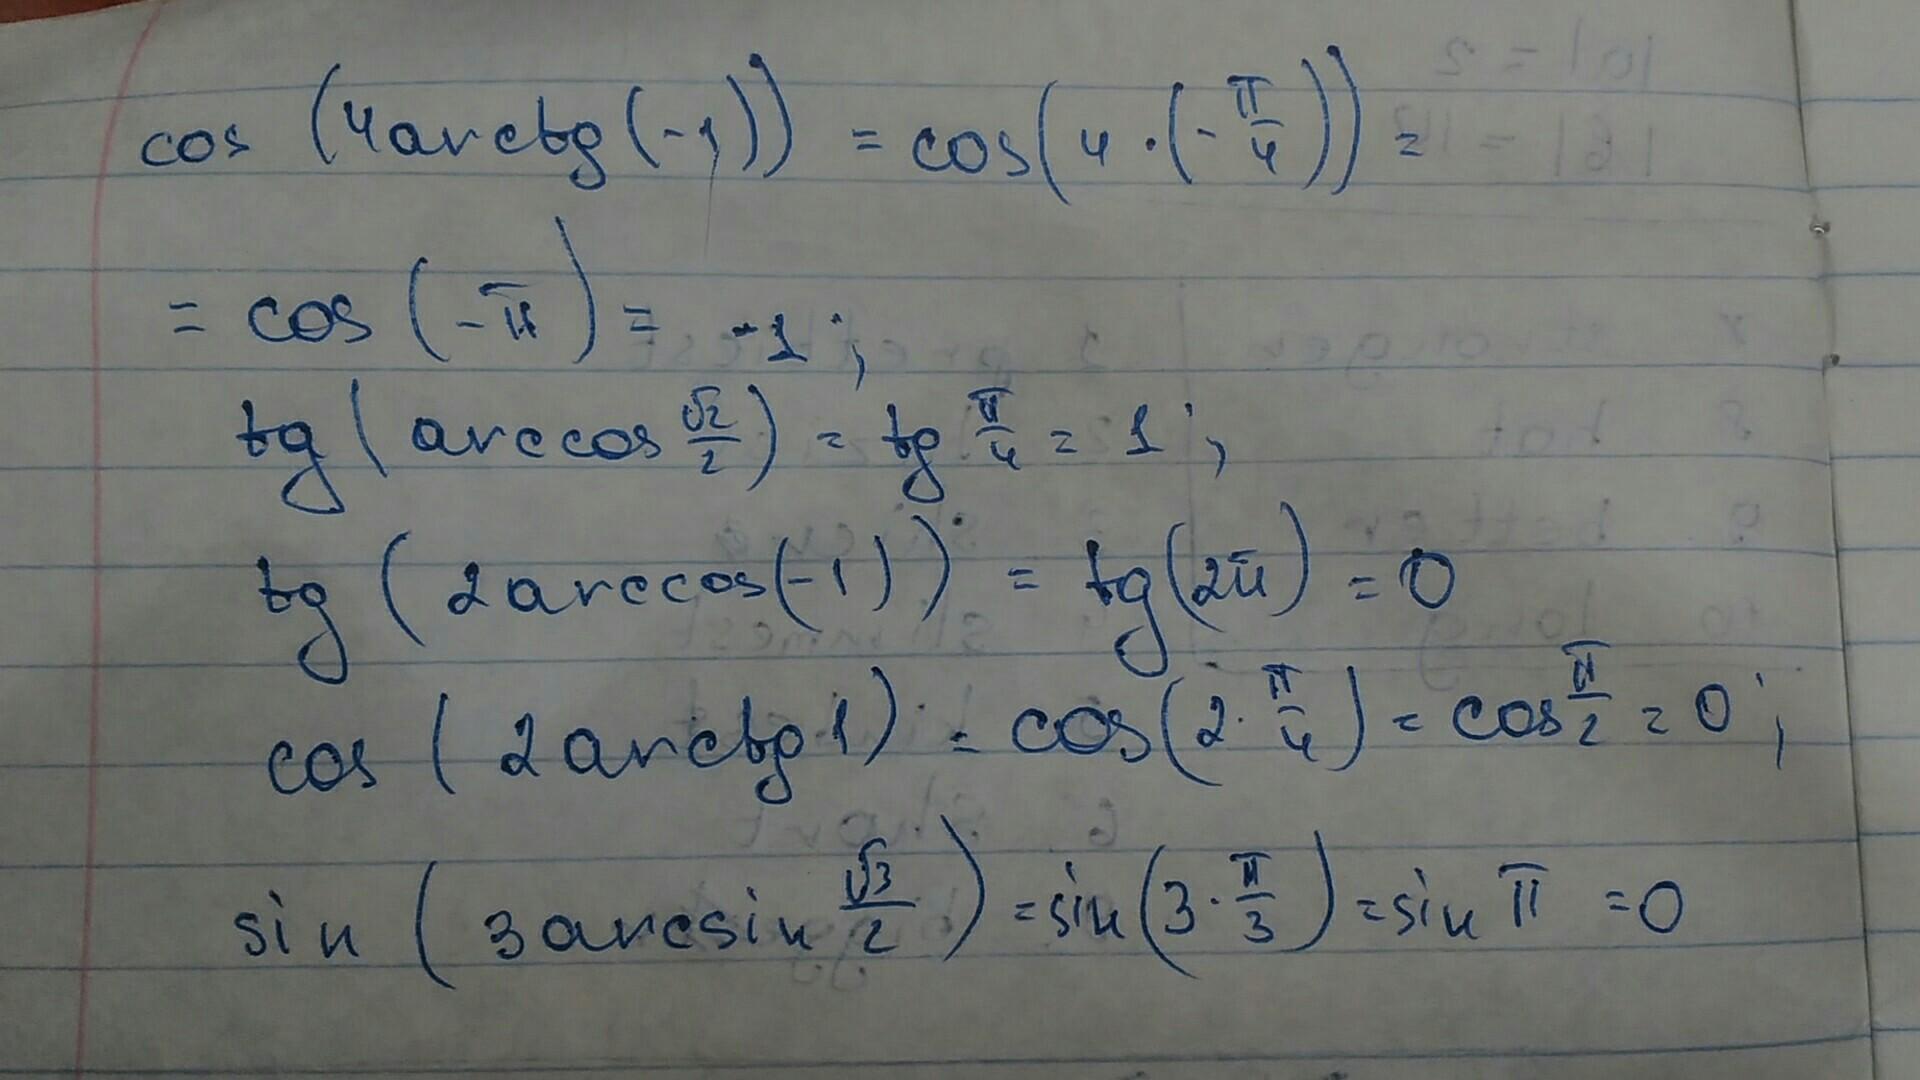 cos (4arctg(-1)) = cos(4·(-π/4)) =
= cos (-π) = -1;
tg(arccos √2/2) = tg π/4 = 1;
tg (2arccos(-1)) = tg(2π) = 0
cos (2arctg1) = cos(2·π/4) = cos π/2 = 0;
sin (3arcsin √3/2) = sin(3·π/3) = sin π = 0